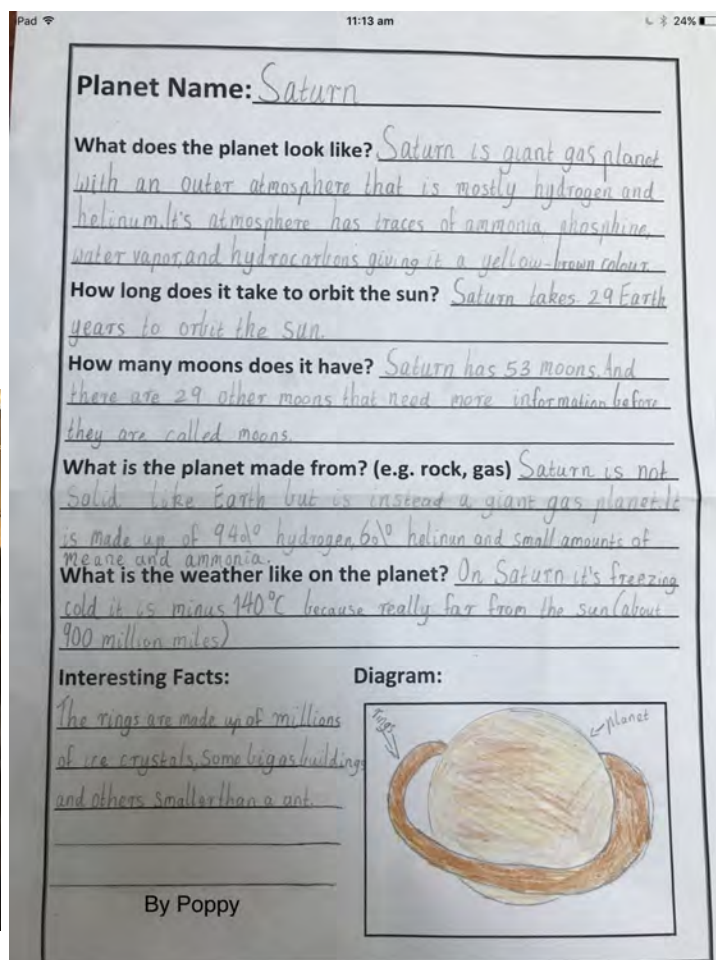 Pad
11:13 am
24%
Planet Name: Saturn
What does the planet look like? Saturn is giant gas planet
with an outer atmosphere that is mostly hydrogen and
helinum.It's atmosphere has traces of ammonia, phosphine,
water vapor,and hydrocarbons giving it a yellow-brown colour.
How long does it take to orbit the sun? Saturn takes 29 Earth
years to orbit the sun.
How many moons does it have? Saturn has 53 moons.And
there are 29 other moons that need more information before
they are called moons.
What is the planet made from? (e.g. rock, gas) Saturn is not
solid like Earth but is instead a giant gas planet.It
is made up of 94% hydrogen,6% helinun and small amounts of
meane and ammonia.
What is the weather like on the planet? On Saturn it's freezing
cold it is minus 140°C because really far from the sun(about
900 million miles)
Interesting Facts:
The rings are made up of millions
of ice crystals,Some big as buildings
and others smaller than a ant.
By Poppy
Diagram:
rings
planet